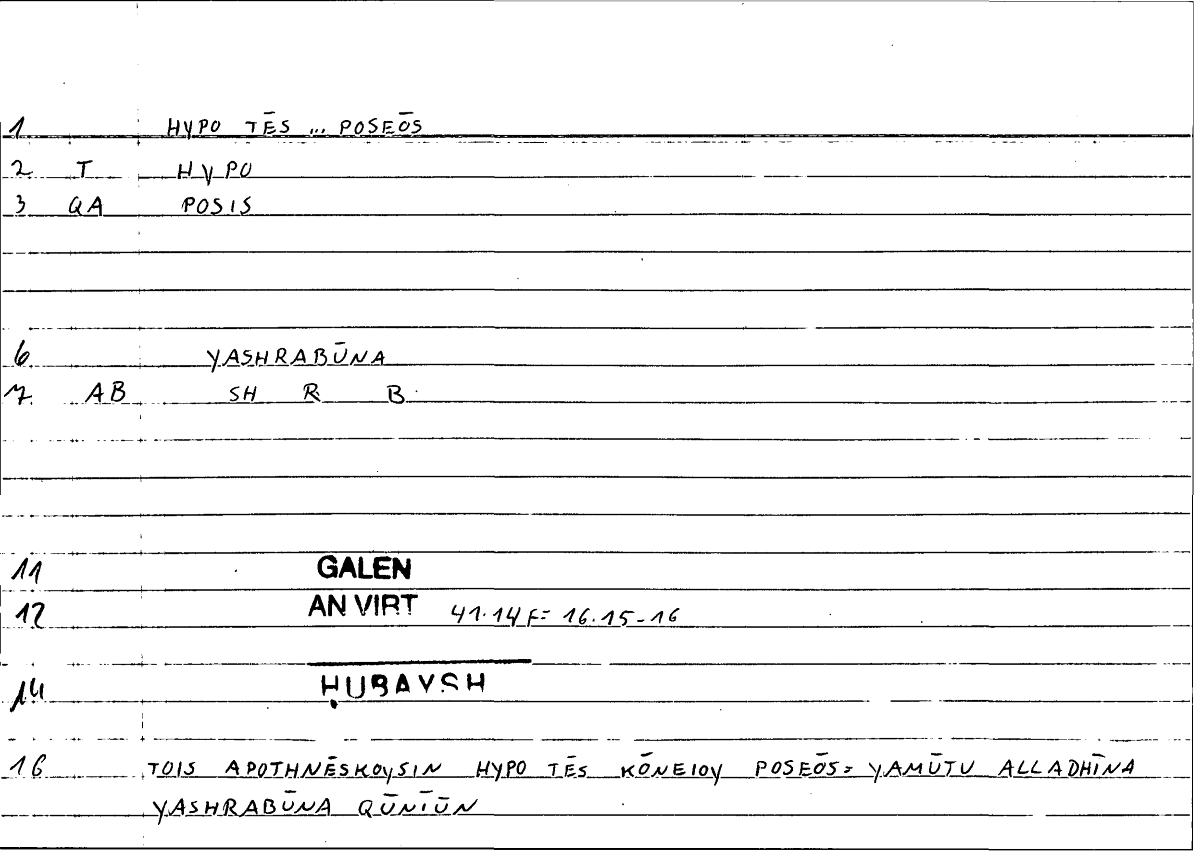 1 HYPO TĒS ... POSEŌS
2 T HYPO
3 QA POSIS
6 YASHRABŪNA
7 AB SH R B
11 GALEN
12 AN VIRT 41.14 F= 16.15-16
14 ḤUBAYSH
16 TOIS APOTHNĒSKOYSIN HYPO TĒS KŌNEIOY POSEŌS= YAMŪTU ALLADHĪNA
YASHRABŪNA QŪNĪŪN